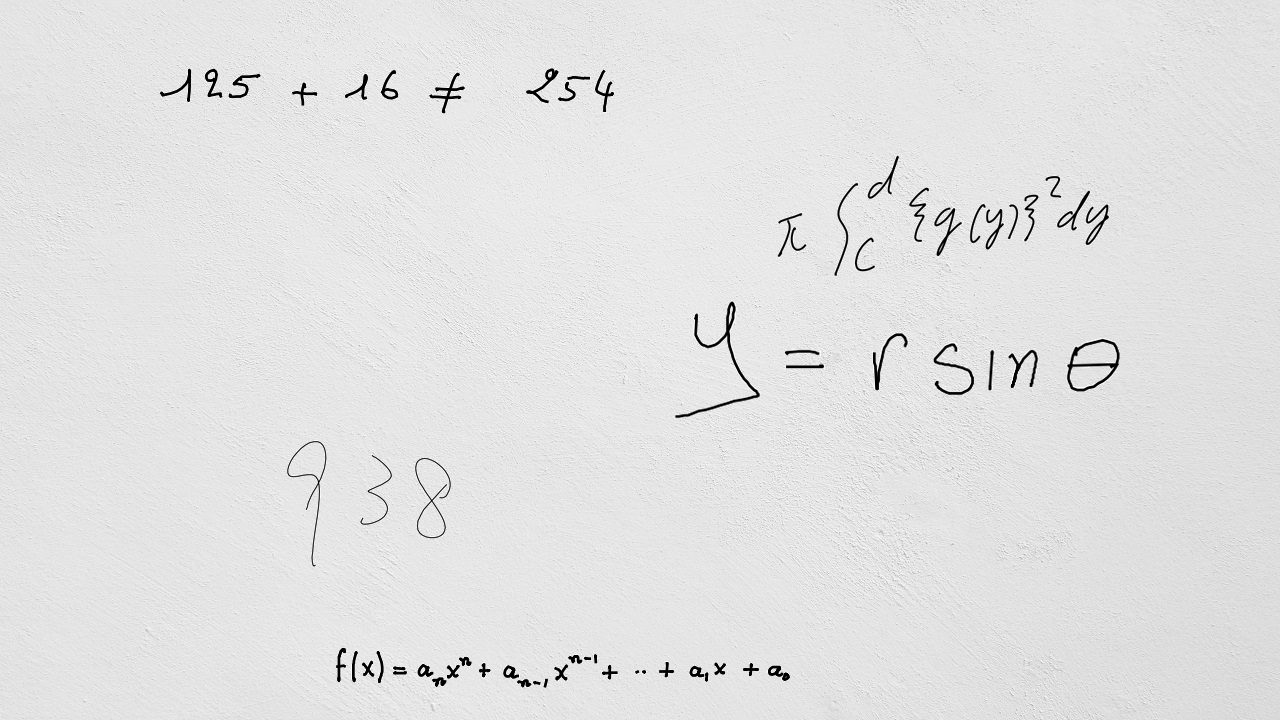 125 + 16 ≠ 254
π ∫_c^d {g(y)}^2 dy
y = r sin θ
938
f(x) = a_n x^n + a_{n-1} x^{n-1} + .. + a_1 x + a_0